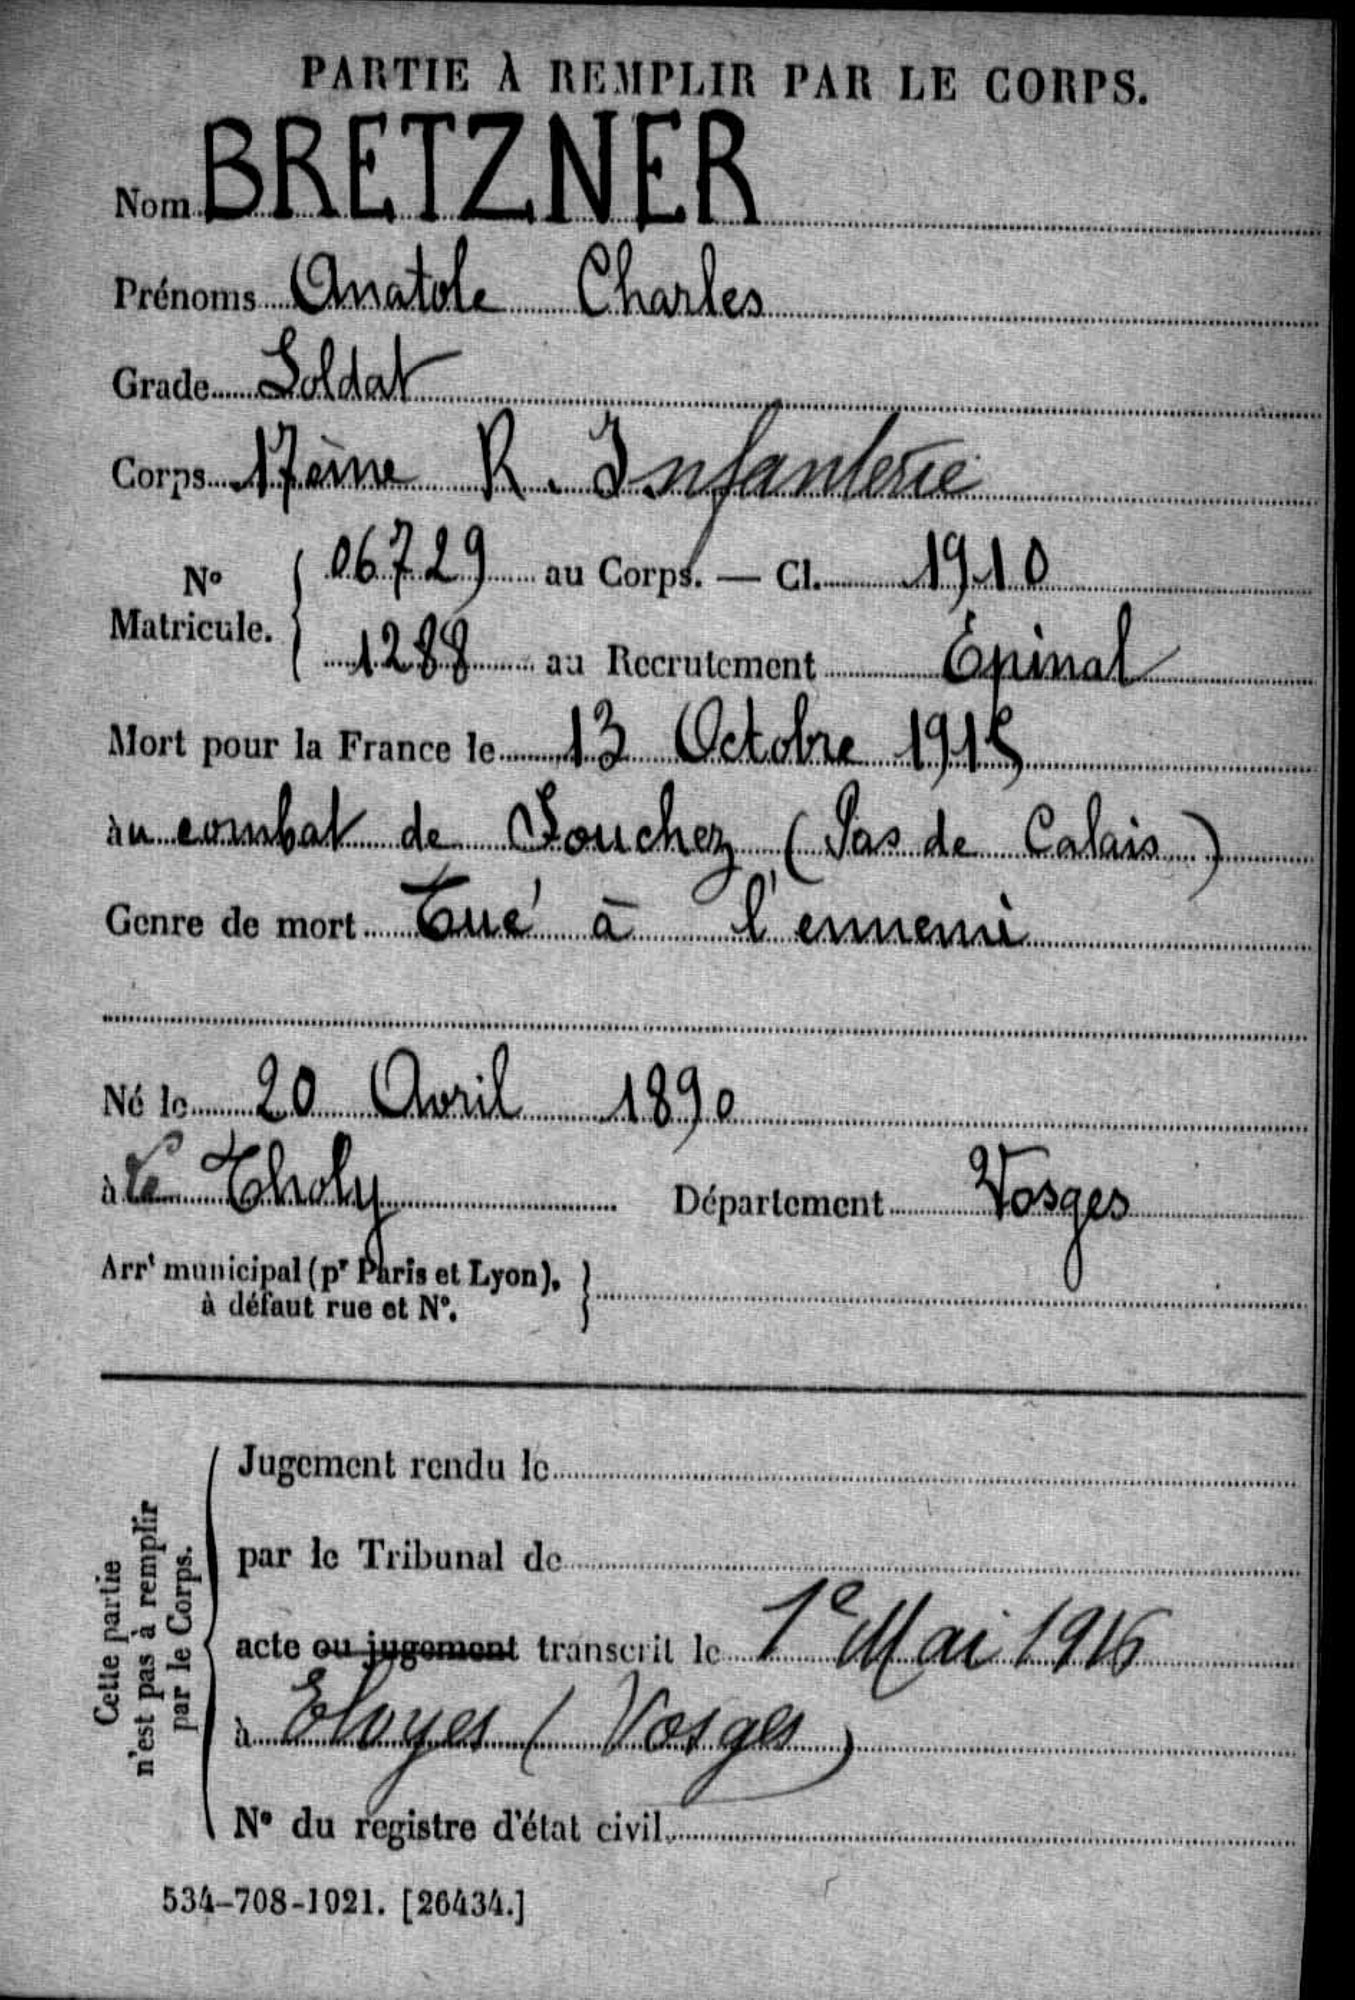 PARTIE À REMPLIR PAR LE CORPS.
Nom BRETZNER
Prénoms Anatole Charles
Grade Soldat
Corps 17ème R. Infanterie
No Matricule. { 06729 au Corps. — Cl. 1910
1288 au Recrutement Epinal
Mort pour la France le 13 Octobre 1915
au combat de Souchez (Pas de Calais)
Genre de mort Tué à l'ennemi
Né le 20 Avril 1890
à Le Tholy Département Vosges
Arrt municipal (pr Paris et Lyon), à défaut rue et No. }
Cette partie n'est pas à remplir par le Corps.
Jugement rendu le
par le Tribunal de
acte ou jugement transcrit le 1e Mai 1916
à Eloyes (Vosges)
No du registre d'état civil
534-708-1921. [26434.]